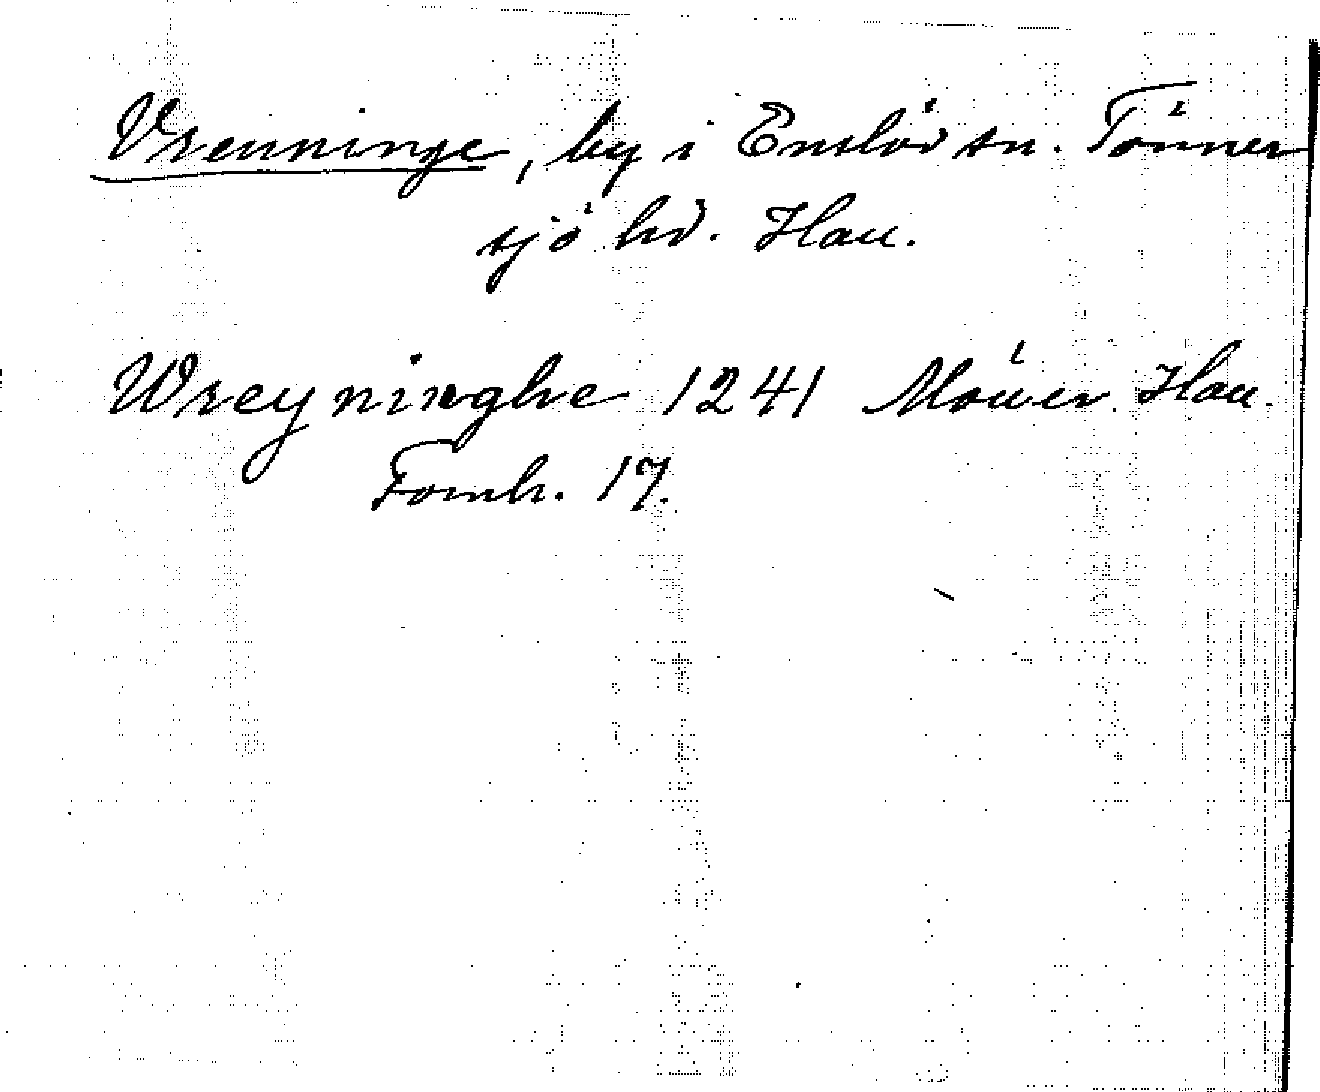 Vrenninge, by i Enslöv sn. Tönner
sjö hd. Hall.
Wreyninghe 1241 Möller. Hall.
Fornh. 17.